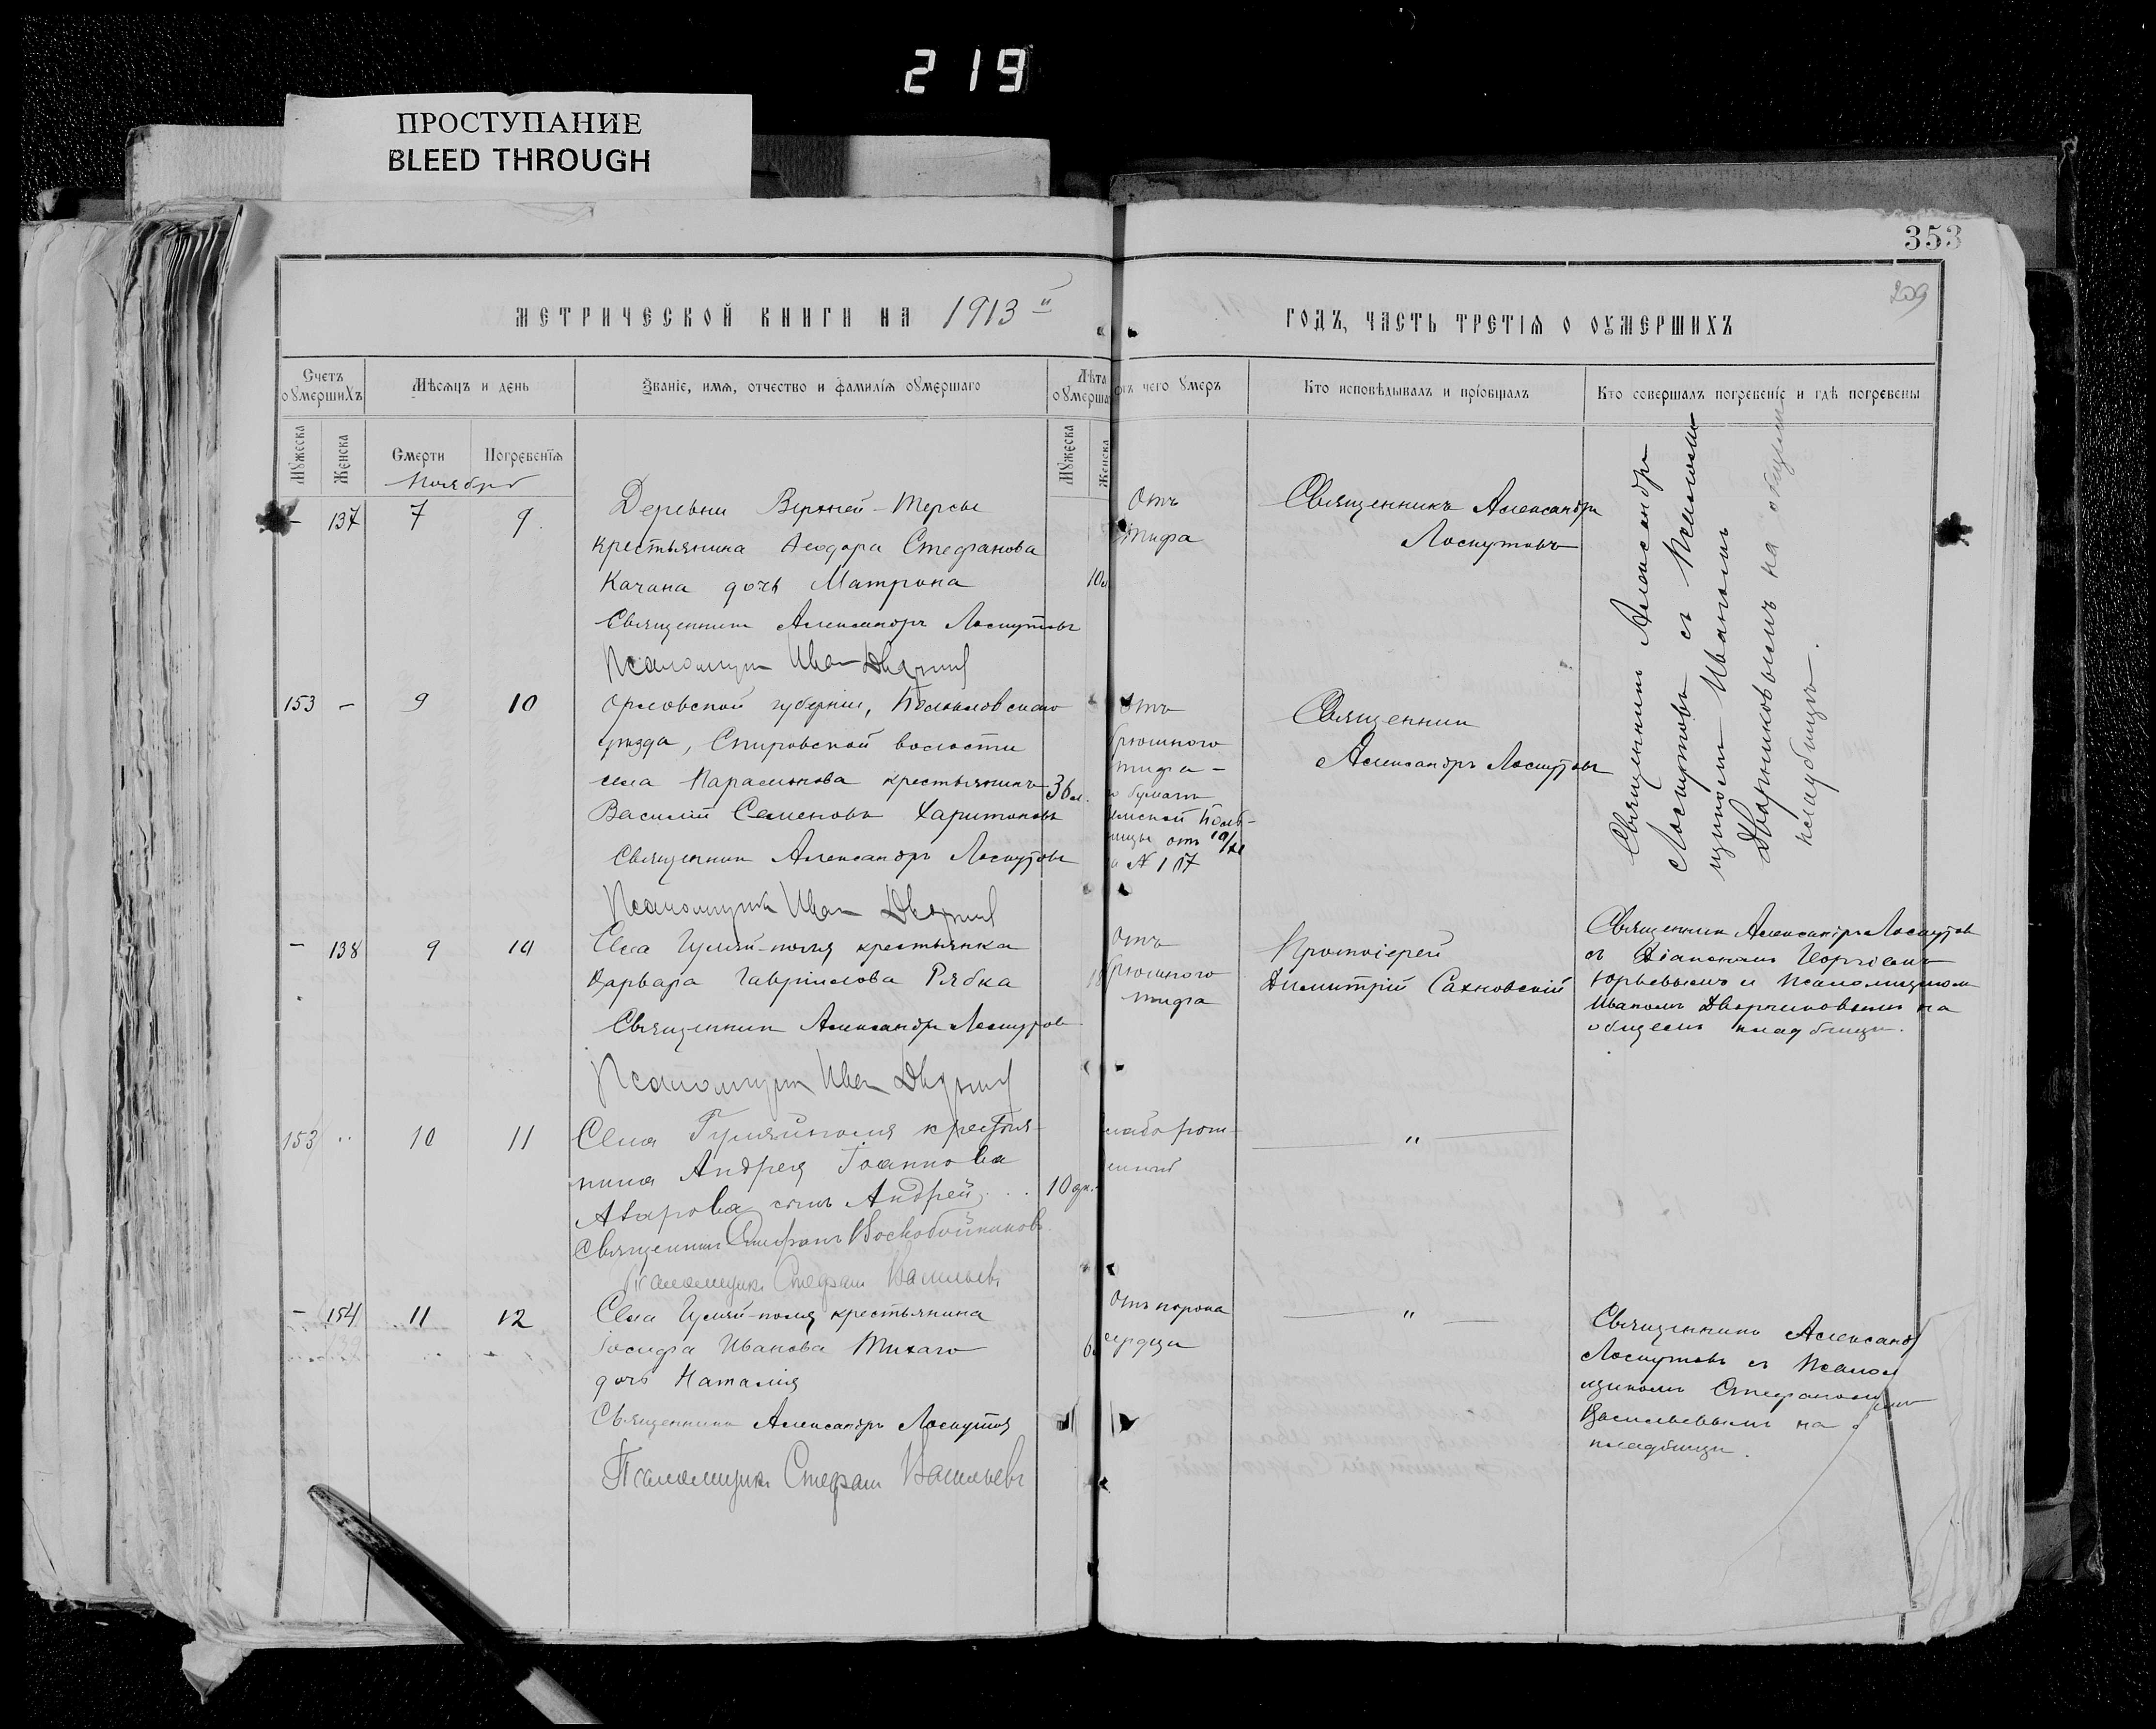 219
ПРОСТУПАНИЕ
BLEED THROUGH
353
209
МЕТРИЧЕСКОЙ КНИГИ НА 1913 й
ГОДЪ, ЧАСТЬ ТРЕТІЯ О ОУМЕРШИХЪ
Счетъ оумершихъ
Мѣсяцъ и день
Званіе, имя, отчество и фамилія оумершаго
Лѣта оумерша
отъ чего умеръ
Кто исповѣдывалъ и пріобщалъ
Кто совершалъ погребеніе и гдѣ погребены
Мужеска
Женска
Смерти
Погребенія
Мужеска
Женска
Ноябрь
— 137 7 9.
Деревни Верхней-Терсы
крестьянина Ѳеодора Стефанова
Качана дочь Матрона
10
Священникъ Александръ Лоскутовъ
Псаломщик Иван
Отъ
тифа
Священникъ Александръ
Лоскутовъ
Священникъ Александръ
Лоскутовъ съ Псаломщикомъ Иваномъ
Дворниковымъ на общемъ
кладбищѣ.
153 — 9 10
Орловской губерніи,
уѣзда, волости
села крестьянинъ
Василій Семеновъ Харитоновъ
36 л.
Священник Александръ Лоскутовъ
Псаломщикъ Иван
Отъ
брюшного
тифа —
бумага
земской Боль-
ницы отъ 10/XI
Священник
Александръ Лоскутовъ
— 138 9 10
Села Гуляй-поля крестьянка
Варвара Гавріилова Рябка
Священник Александръ Лоскутов
Псаломщик Иван
Отъ
брюшного
тифа
Протоіерей
Димитрій Сахновскій
Священник Александръ Лоскутов
съ Діаконом Георгіемъ
Юрьевымъ и Псаломщиком
Иваномъ Дворниковымъ на
общемъ кладбищѣ.
153 „ 10 11
Села Гуляйполя крестья-
нина Андрея Іоаннова
Азарова сынъ Андрей
10 дн.
Священник Стефанъ Воскобойников
Псаломщикъ Стефан Васильевъ
слаборож-
енный
— „ —
— 154 11 12
Села Гуляй-поля крестьянина
Іосифа Иванова Тихаго
дочь Наталія
6
Священникъ Александръ Лоскутов
Псаломщикъ Стефан Васильевъ
Отъ порока
сердца
— „ —
Священникъ Александ
Лоскутовъ съ Псалом
щикомъ Стефаномъ
Васильевымъ на
кладбищѣ.